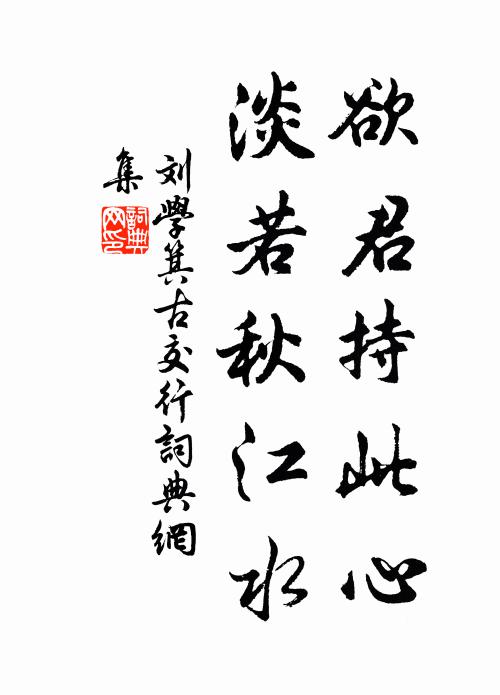 欲君持此心
淡若秋江水
刘學箕古交行詞典網
集
詞典網印